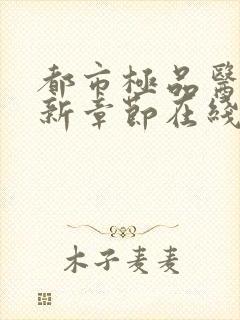 都市極品醫
新章節在綫
木子麦麦